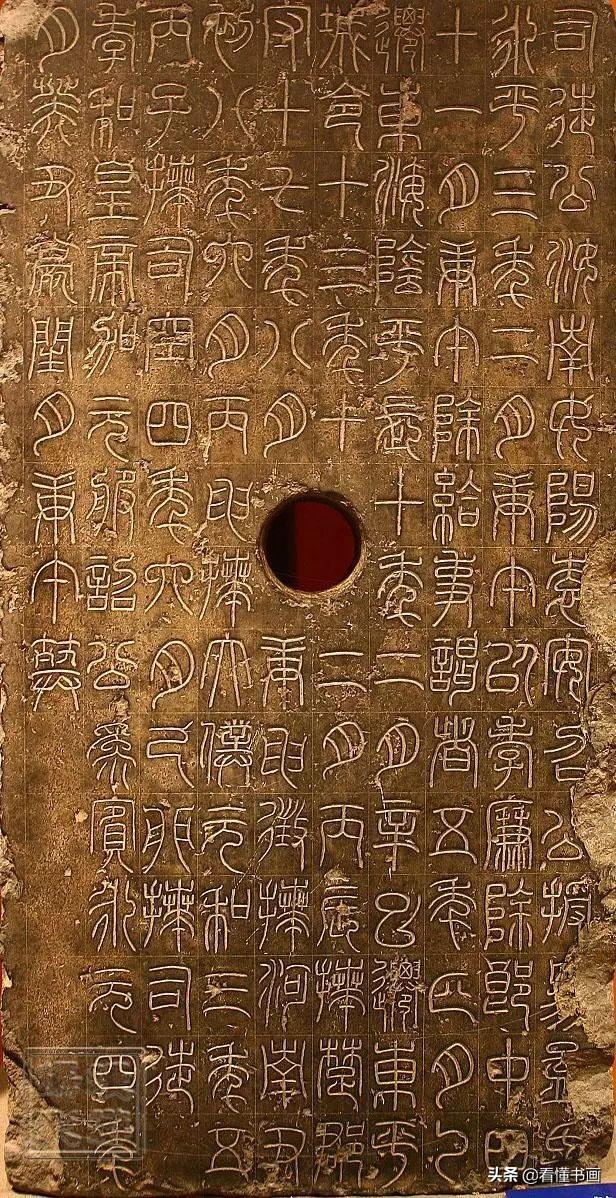 司徒公汝南女陽袁安召公授易孟氏
永平三年二月庚午以孝廉除郎中四
十一月庚午除給事謁者五年正月乙
遷東海陰平長十年二月辛巳遷東平
城令十三年十二月丙辰拜楚郡
守十七年八月庚申徵拜河南尹
初八年六月丙申拜太僕元和三年五
丙子拜司空四年六月己卯拜司徒
孝和皇帝加元服詔公為賓永元四年
月癸丑薨閏月庚午葬
头条 @看懂书画